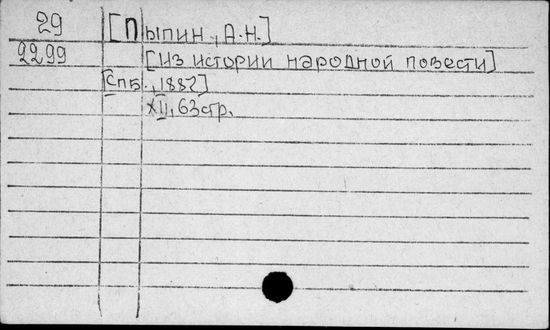 29 [Пыпин, А.Н.]
2299 [Из истории народной повести]
[СПБ., 1887]
XII, 63 стр.